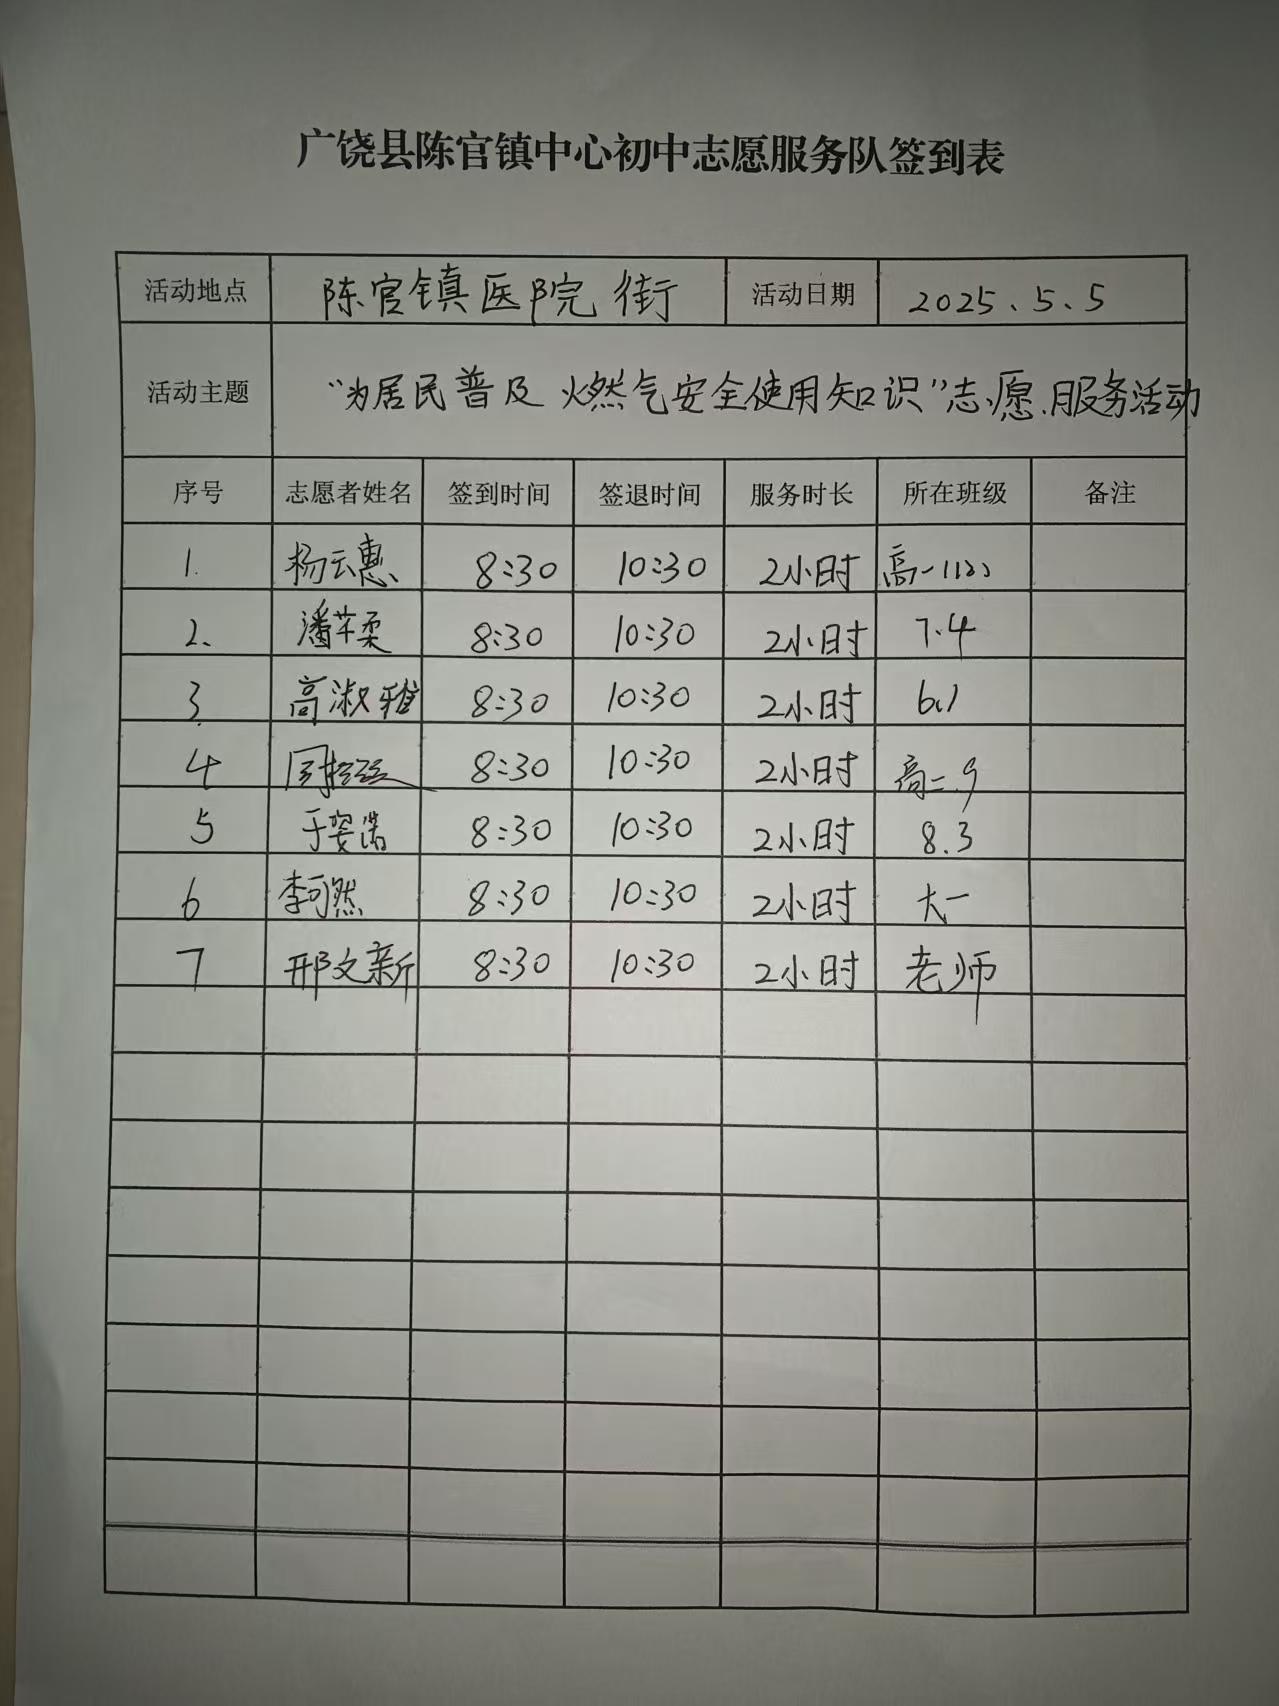 广饶县陈官镇中心初中志愿服务队签到表
活动地点 陈官镇医院街 活动日期 2025.5.5
活动主题 “为居民普及燃气安全使用知识”志愿服务活动
序号 志愿者姓名 签到时间 签退时间 服务时长 所在班级 备注
1. 杨云惠 8:30 10:30 2小时 高一
2. 潘芊柔 8:30 10:30 2小时 7.4
3. 高淑雅 8:30 10:30 2小时 6.1
4 8:30 10:30 2小时 高二.9
5 于姿诺 8:30 10:30 2小时 8.3
6 李可然 8:30 10:30 2小时 大一
7 邢文新 8:30 10:30 2小时 老师